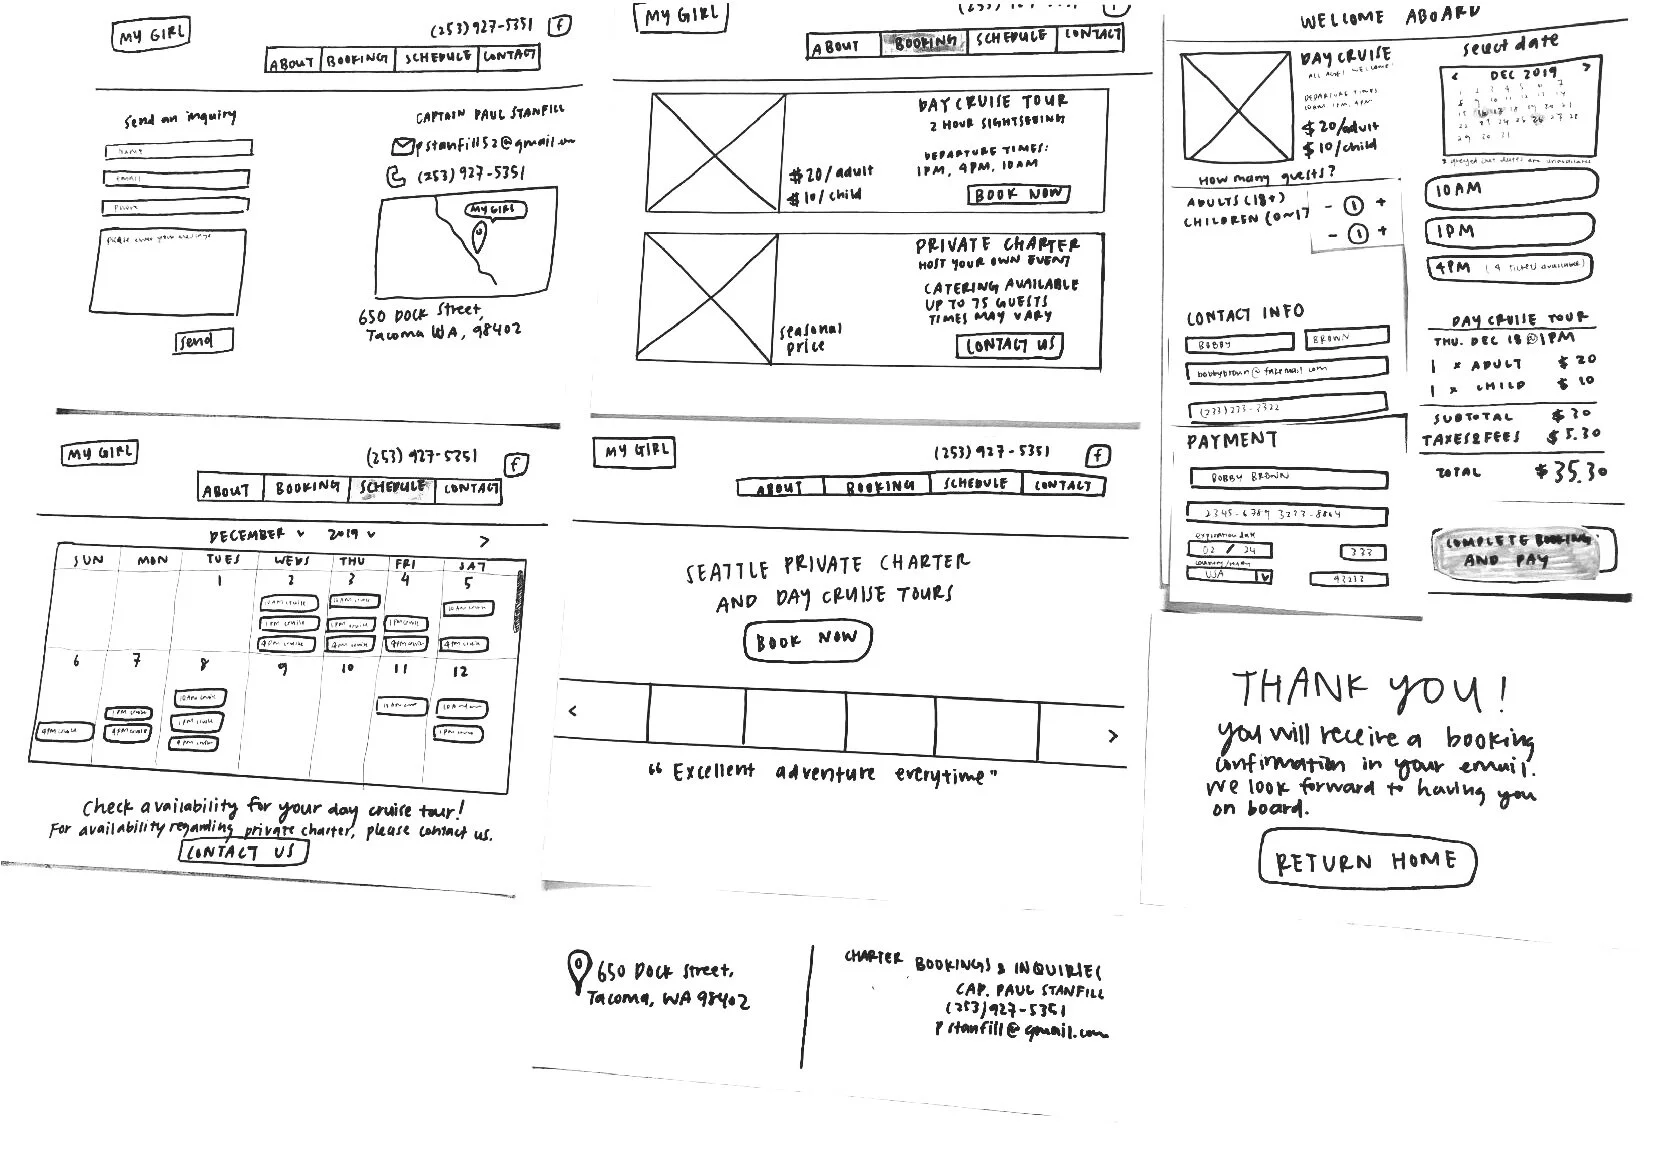 MY GIRL
(253) 927-5351 f
ABOUT BOOKING SCHEDULE CONTACT
Send an inquiry
Name
Email
Phone
Please enter your message
Send
CAPTAIN PAUL STANFILL
pstanfill52@gmail.com
(253) 927-5351
MY GIRL
650 DOCK Street,
Tacoma WA, 98402
MY GIRL
ABOUT BOOKING SCHEDULE CONTACT
DAY CRUISE TOUR
2 HOUR SIGHTSEEING
DEPARTURE TIMES:
1PM, 4PM, 10AM
$20/adult
$10/child
BOOK NOW
PRIVATE CHARTER
HOST YOUR OWN EVENT
CATERING AVAILABLE
UP TO 75 GUESTS
TIMES MAY VARY
seasonal
price
CONTACT US
WELCOME ABOARD
DAY CRUISE
ALL AGES WELCOME!
DEPARTURE TIMES
10AM, 1PM, 4PM
$20/adult
$10/child
How many guests?
ADULTS (18+) - 1 +
CHILDREN (0~17 - 1 +
CONTACT INFO
BOBBY BROWN
bobbybrown@fakemail.com
PAYMENT
BOBBY BROWN
expiration date
02 / 24 333
USA 98233
select date
< DEC 2019 >
10AM
1PM
4PM (4 tickets available)
DAY CRUISE TOUR
THU. DEC 18 @ 1PM
1 x ADULT $20
1 x CHILD $10
SUBTOTAL $30
TAXES&FEES $5.30
TOTAL $35.30
COMPLETE BOOKING
AND PAY
MY GIRL
(253) 927-5351 f
ABOUT BOOKING SCHEDULE CONTACT
DECEMBER 2019 >
SUN MON TUES WEDS THU FRI SAT
1 2 3 4 5
10AM cruise 10AM cruise 10AM cruise
1PM cruise 1PM cruise 1PM cruise
4PM cruise 4PM cruise 4PM cruise 4PM cruise
6 7 8 9 10 11 12
10AM cruise 10AM cruise 10AM cruise
1PM cruise 1PM cruise 1PM cruise
4PM cruise 4PM cruise 4PM cruise
Check availability for your day cruise tour!
For availability regarding private charter, please contact us.
CONTACT US
MY GIRL
(253) 927-5351 f
ABOUT BOOKING SCHEDULE CONTACT
SEATTLE PRIVATE CHARTER
AND DAY CRUISE TOURS
BOOK NOW
< >
"Excellent adventure everytime"
650 DOCK Street,
Tacoma, WA 98402
CHARTER BOOKINGS & INQUIRIES
CAP. PAUL STANFILL
(253)927-5351
pstanfill@gmail.com
THANK YOU!
you will receive a booking
confirmation in your email.
We look forward to having you
on board.
RETURN HOME